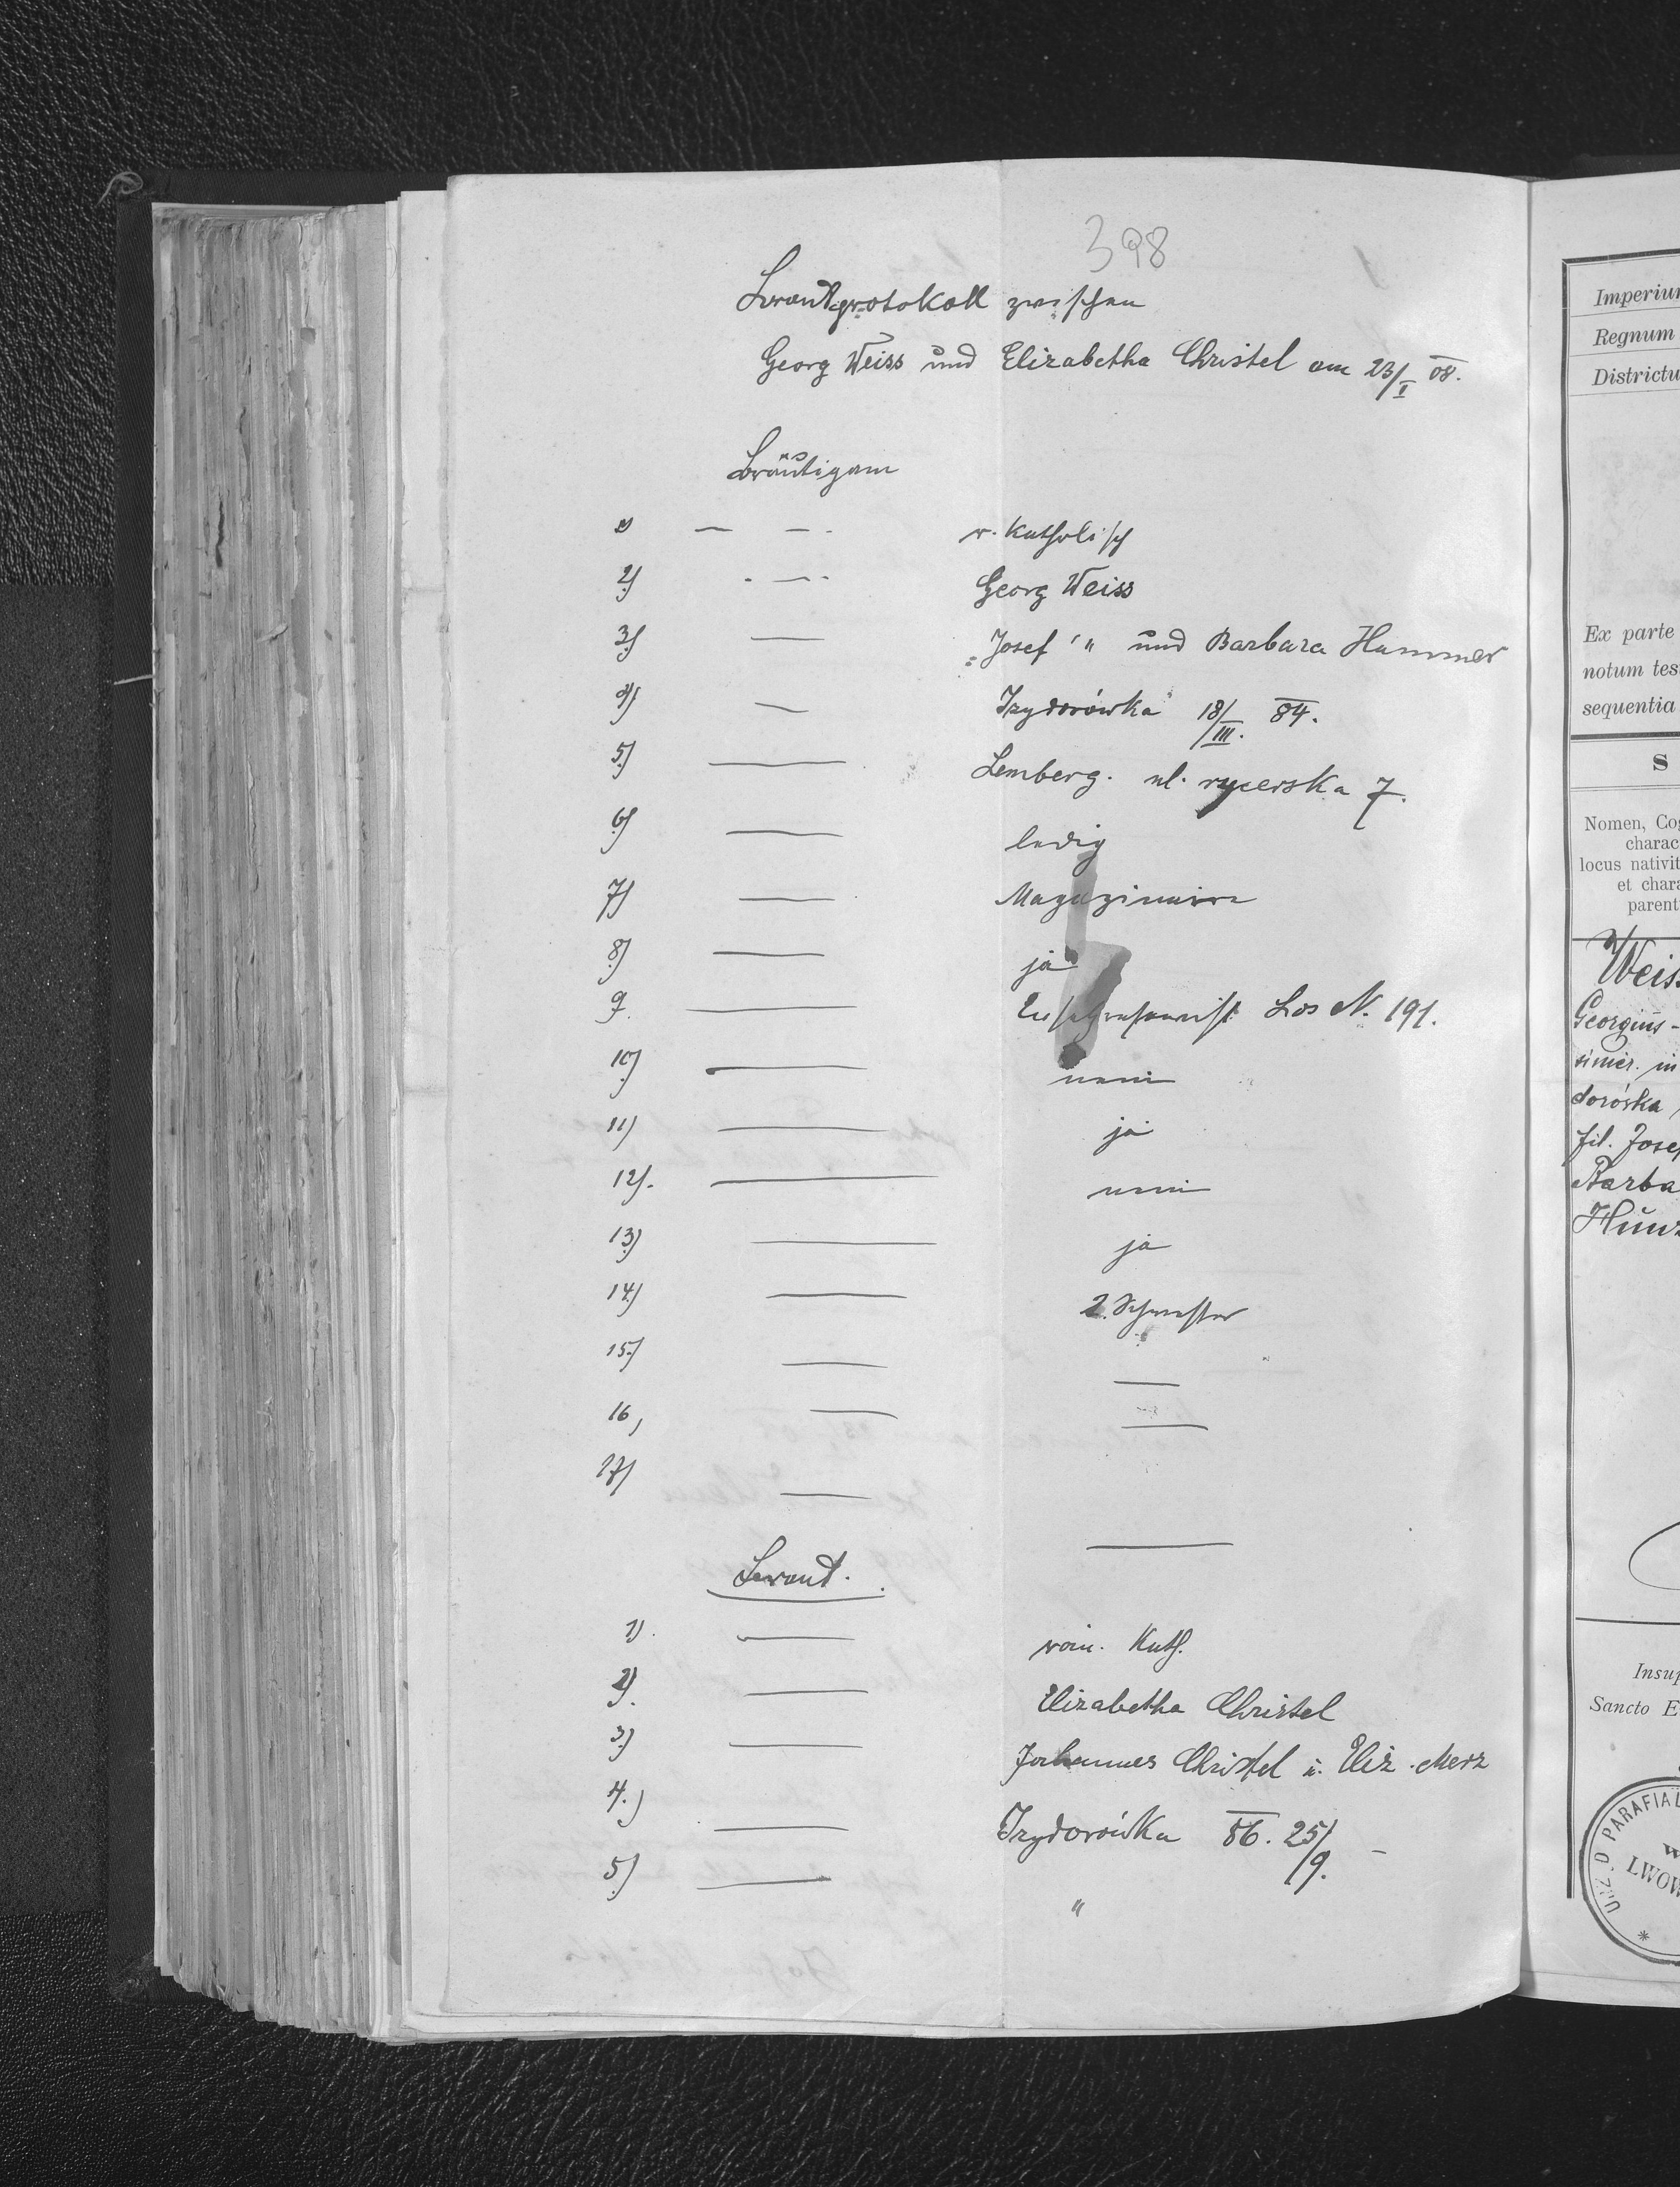 398
Brautprotokoll zwischen
Georg Weiss und Elizabetha Christel am 23/I 08.
Bräutigam
1) — — r. katholisch
2) — Georg Weiss
3) — Josef " und Barbara Hammer
4) — Izydorówka 18/III. 84.
5) — Lemberg. ul. rycerska 7.
6) — ledig
7) — Magazineur
8) — ja
9. — Los N. 191.
10) — nein
11) — ja
12). — nein
13) — ja
14) — 2. Schwester
15) — —
16, — —
17) — —
Braut.
1). — röm. Kath.
2). — Elizabetha Christel
3) — Johannes Christel u. Eliz. Merz
4.) — Izydorówka 86. 25/9. —
5.) — "
Imperium
Regnum
Districtu
Ex parte
notum tes
sequentia
S
Nomen, Cog
charac
locus nativit
et chara
parent
Weiss
Georgius -
in
doróska
fil. Josep
Barba
Insup
Sancto E
URZĄD PARAFIAL
W
LWOW